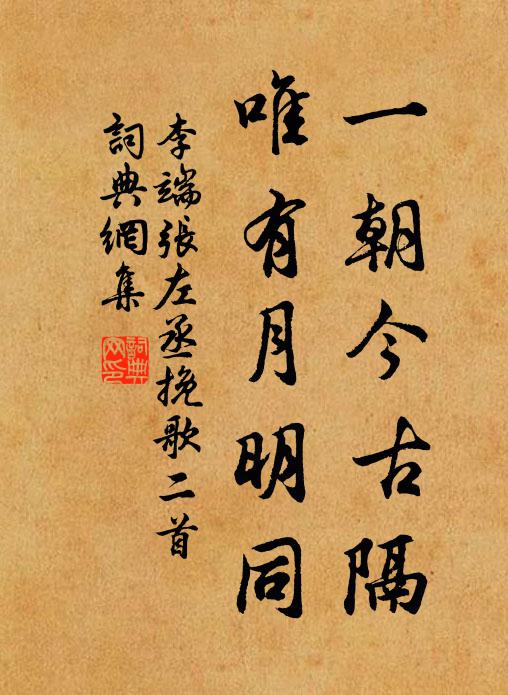 一朝今古隔
唯有月明同
李端張左丞挽歌二首
詞典網集
詞典
网印